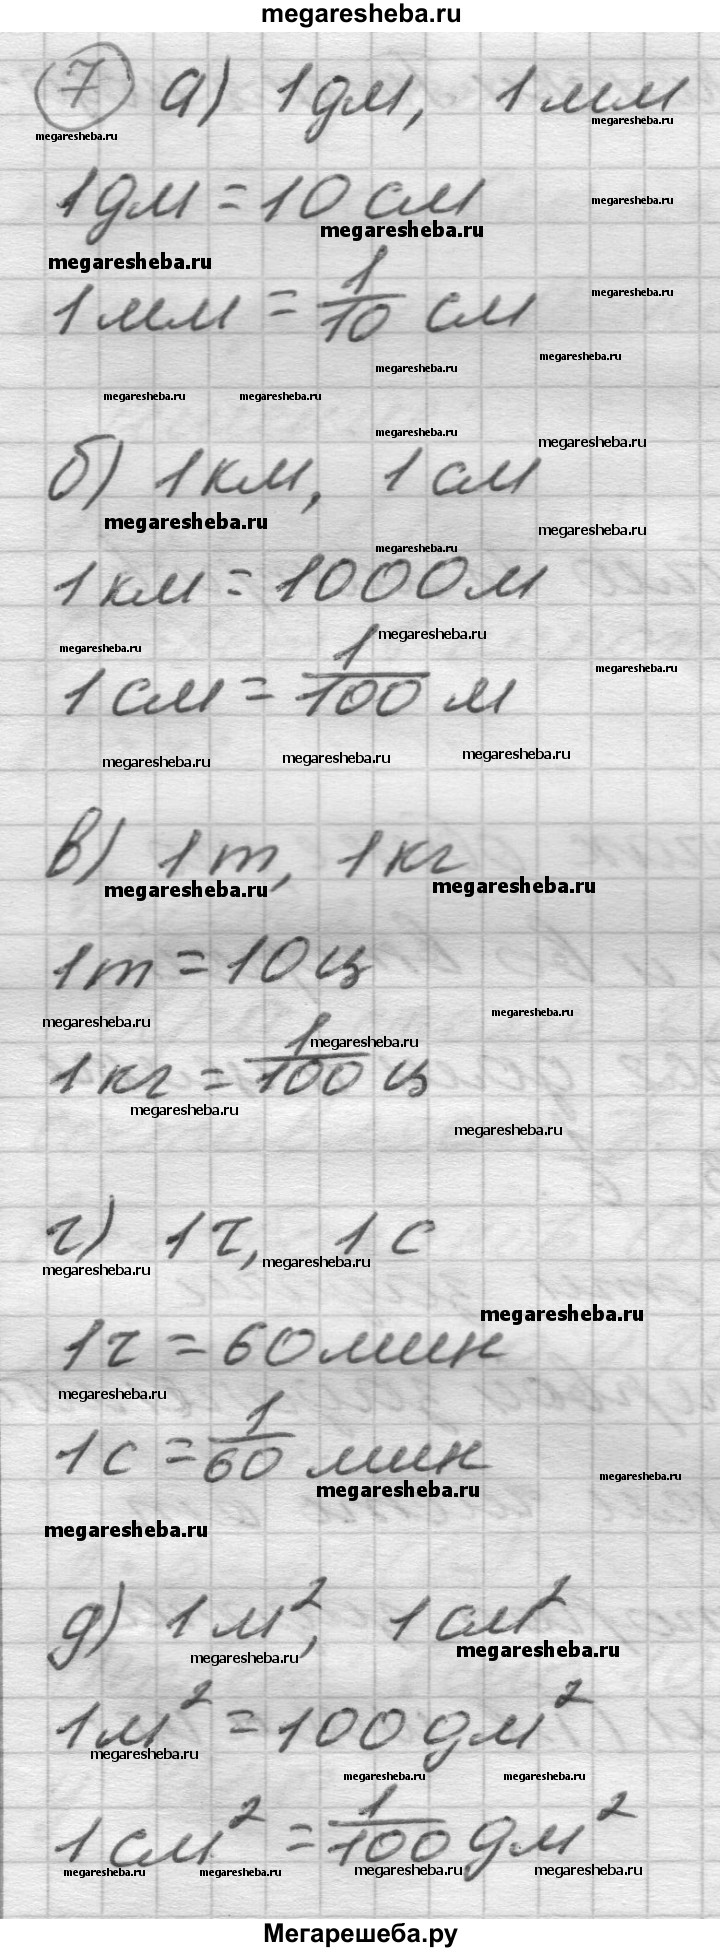 megaresheba.ru
7 а) 1дм, 1мм
megaresheba.ru
megaresheba.ru
1дм = 10 см
megaresheba.ru
megaresheba.ru
megaresheba.ru
1мм = 1/10 см
megaresheba.ru
megaresheba.ru
megaresheba.ru
megaresheba.ru
megaresheba.ru
megaresheba.ru
megaresheba.ru
б) 1км, 1см
megaresheba.ru
megaresheba.ru
megaresheba.ru
1км = 1000м
megaresheba.ru
megaresheba.ru
1см = 1/100 м
megaresheba.ru
megaresheba.ru
megaresheba.ru
megaresheba.ru
в) 1т, 1кг
megaresheba.ru
megaresheba.ru
1т = 10ц
megaresheba.ru
megaresheba.ru
1кг = 1/100 ц
megaresheba.ru
megaresheba.ru
megaresheba.ru
г) 1ч, 1с
megaresheba.ru
megaresheba.ru
megaresheba.ru
1ч = 60мин
megaresheba.ru
1с = 1/60 мин
megaresheba.ru
megaresheba.ru
megaresheba.ru
д) 1м², 1см²
megaresheba.ru
megaresheba.ru
1м² = 100дм²
megaresheba.ru
megaresheba.ru
megaresheba.ru
1см² = 1/100 дм²
megaresheba.ru
megaresheba.ru
megaresheba.ru
megaresheba.ru
Мегарешеба.ру